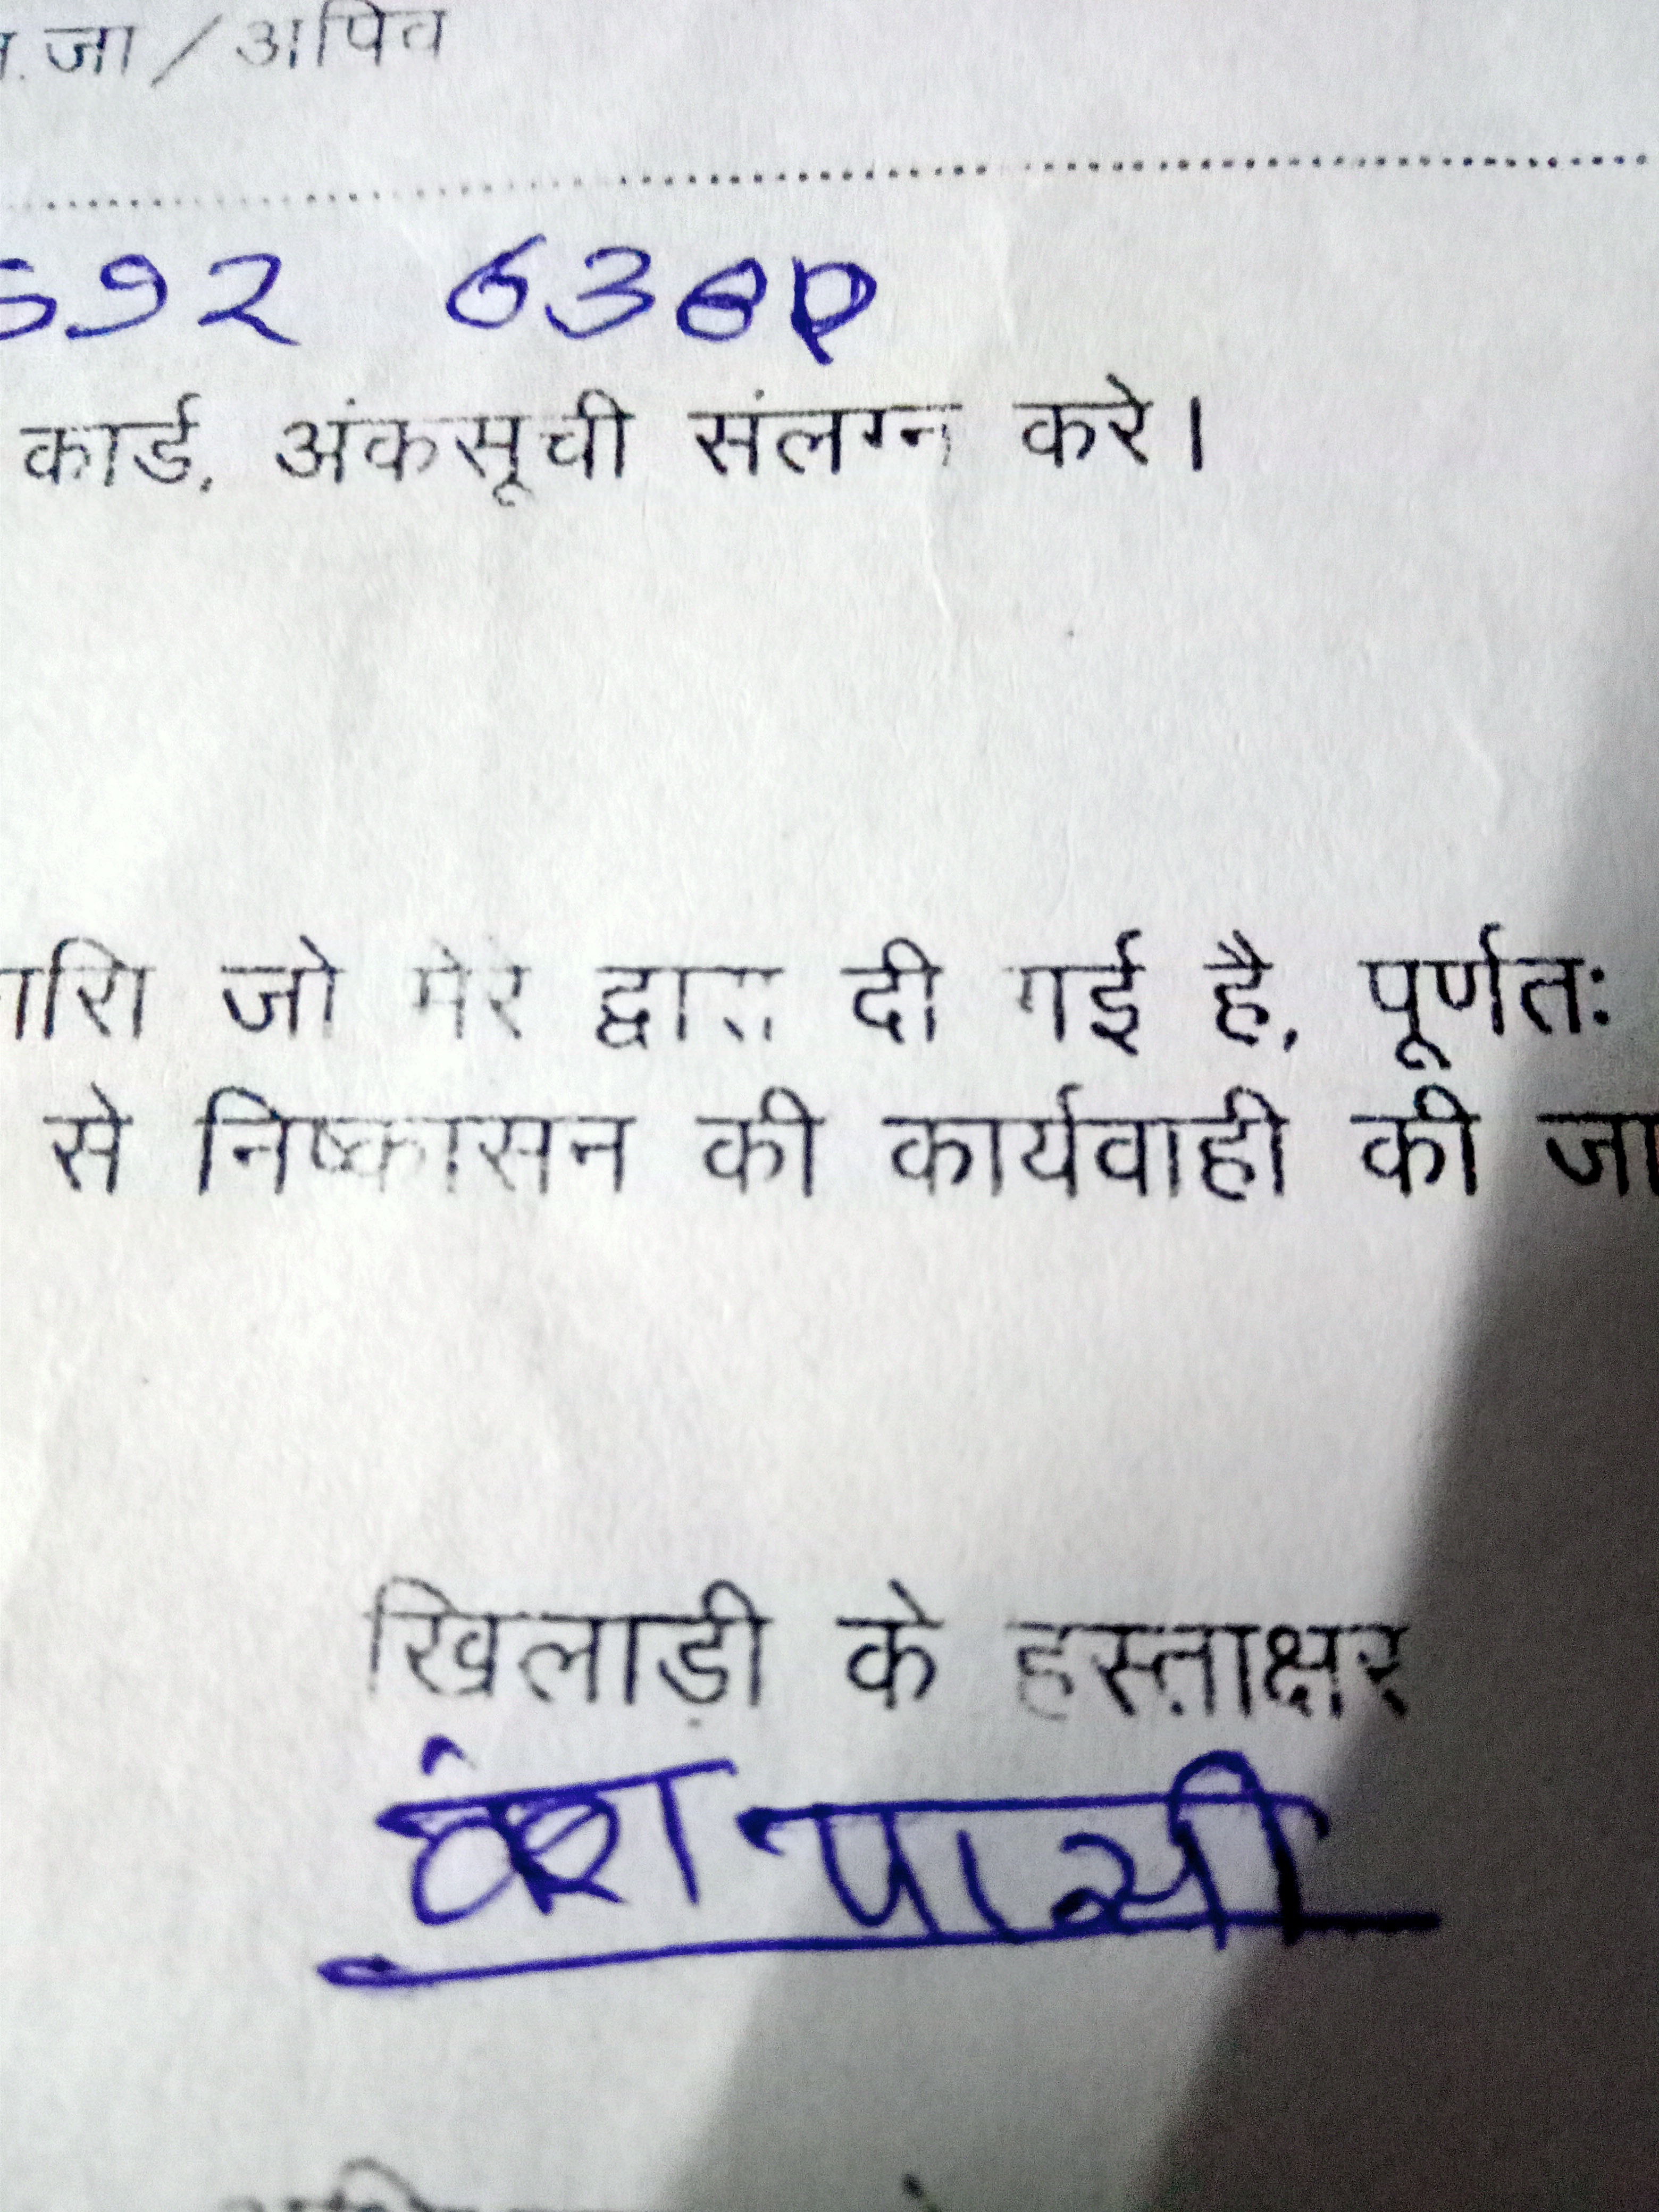 जा / अपिव
592 6380
कार्ड, अंकसूची संलग्न करे।
जो मेरे द्वारा दी गई है, पूर्णतः
से निष्कासन की कार्यवाही की जा
खिलाड़ी के हस्ताक्षर
वंश पासी